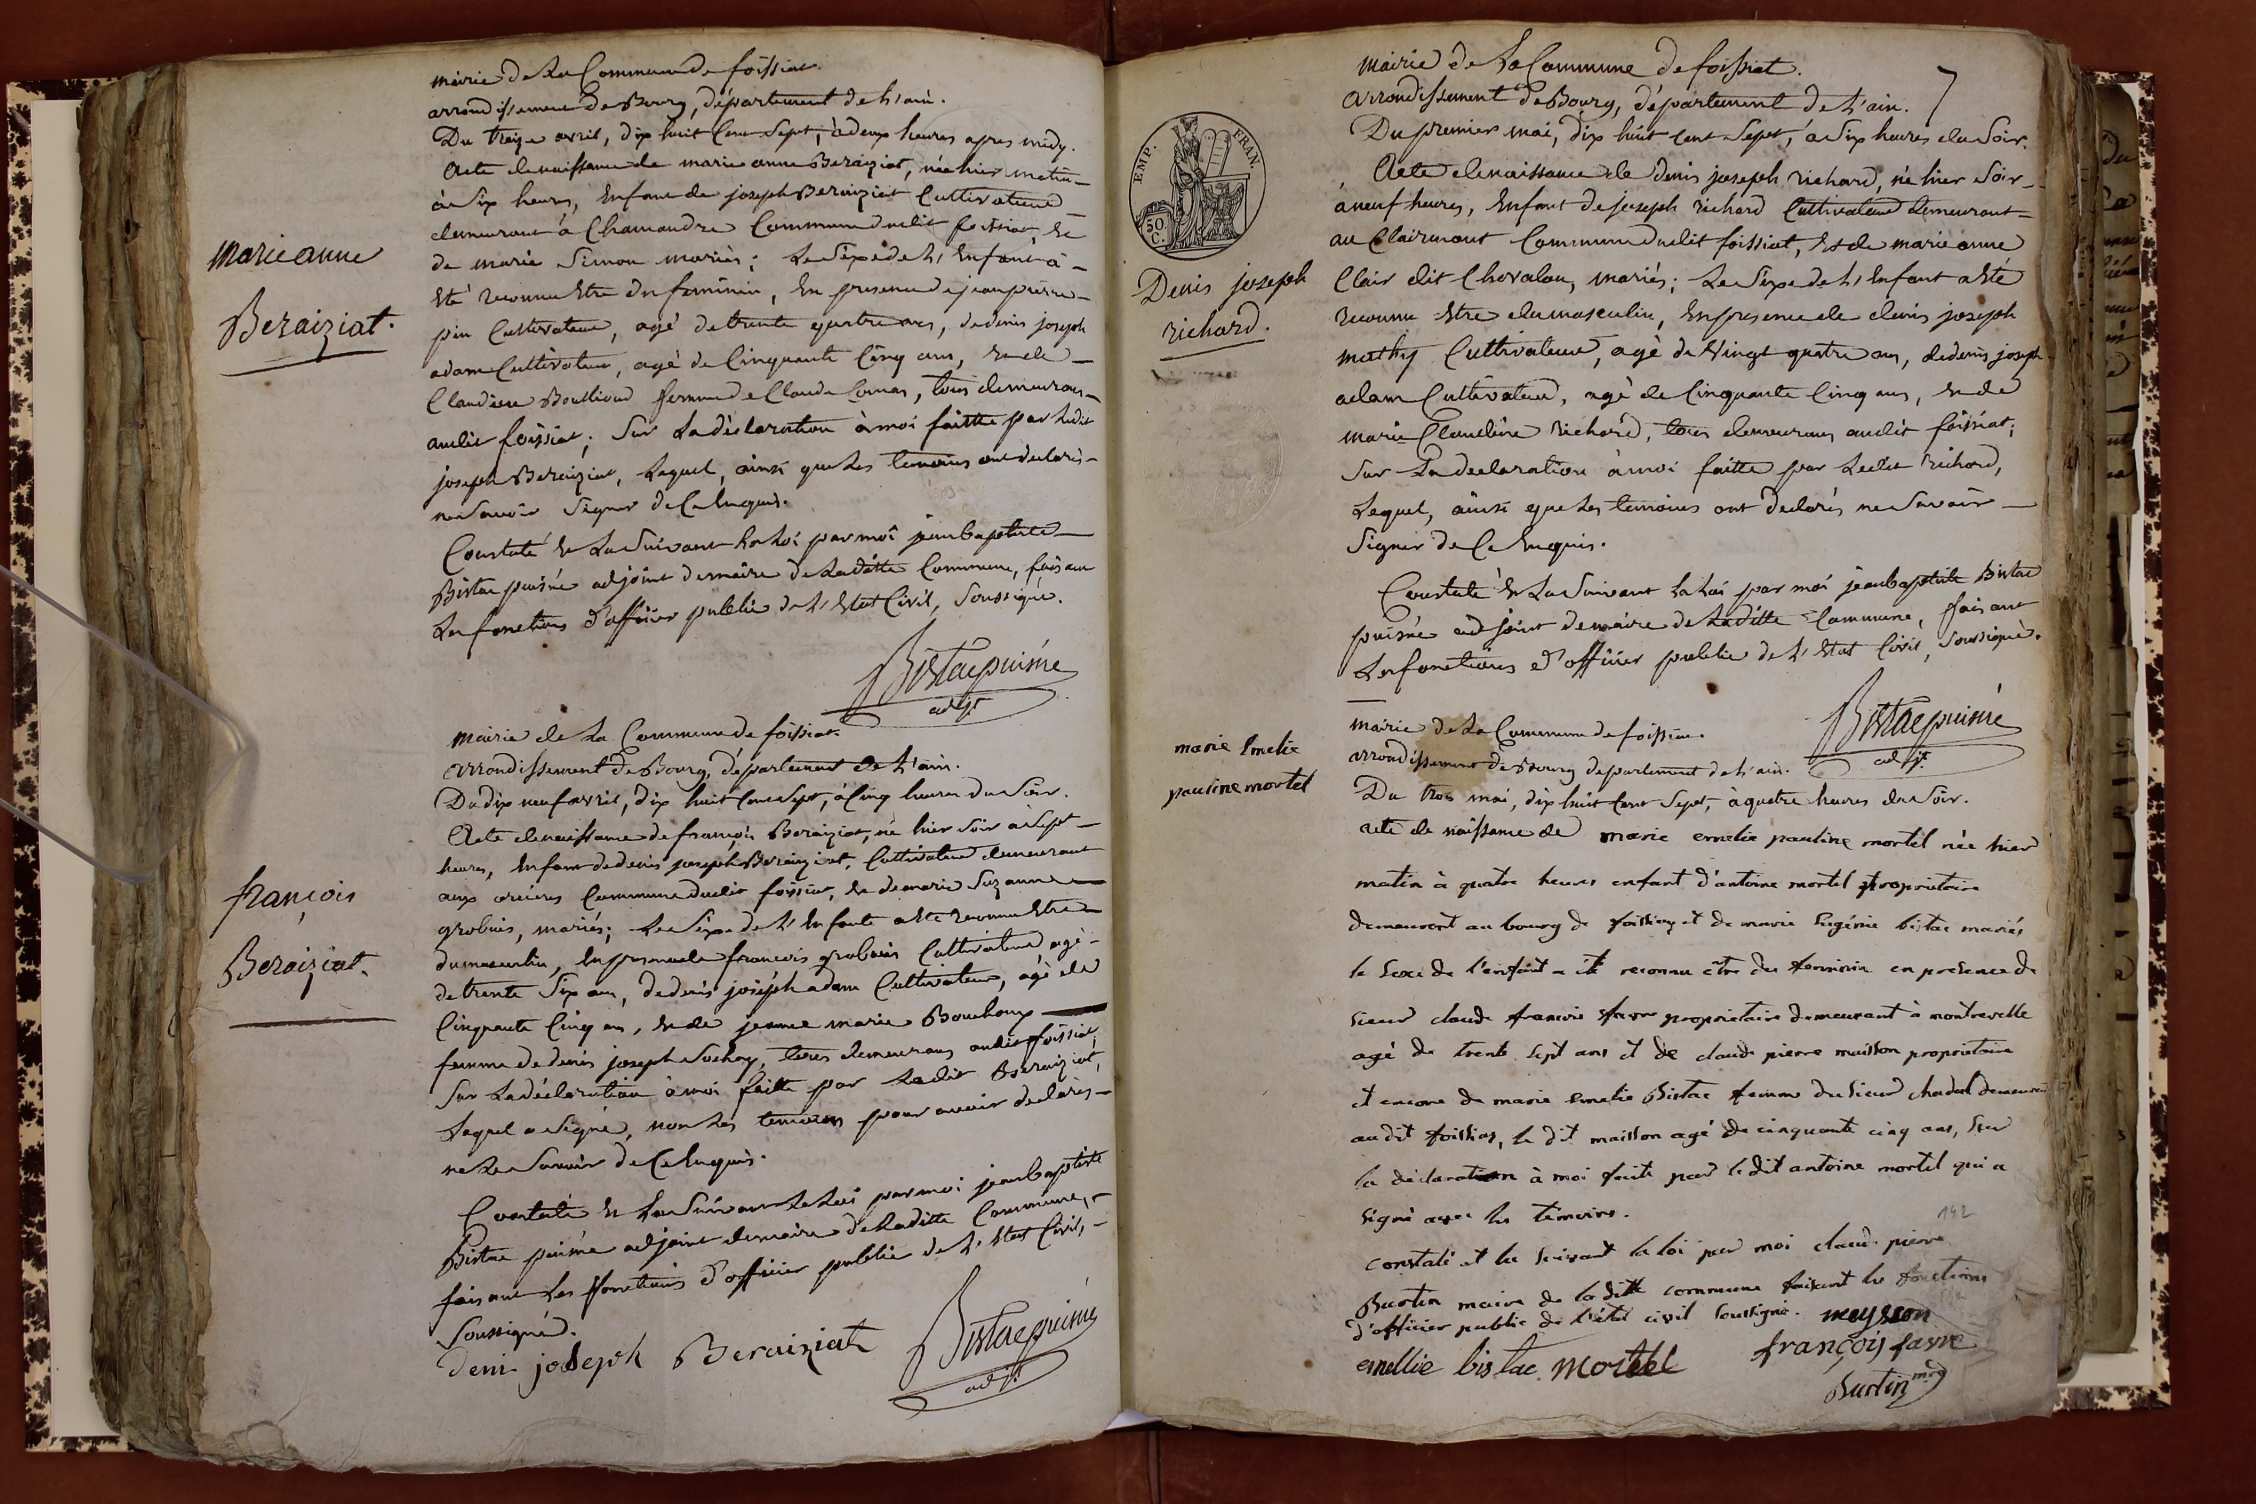 mairie de La Commune de foissiat.
arrondissement de Bourg, département de L'ain.
Du treize avril, dix huit Cent Sept, à deux heures apres midy.
Acte de naissance de marie anne Beraiziat, née hier matin
à Six heures, Enfant de joseph Beraiziat Cultivateur
demeurant à Chamandre Commune dudit foissiat, Et
de marie Simon mariés; Le Sexe de L'Enfant à
Eté reconnu Etre du féminin, En presence de jean pierre
pin Cultivateur, agé de trente quatre ans, de denis joseph
adam Cultivateur, agé de Cinquante Cinq ans, Et de
Claudine Boullioud femme de Claude Comas, tous demeurans
audit foissiat; Sur La déclaration à moi faitte par Ledit
joseph Beraiziat, Lequel, ainsi que Les temoins ont declarés
ne Savoir Signer de Ce Enquis.
Constaté Et Lu Suivant La Loi par moi jean baptiste
Bistac puisné adjoint de maire de Laditte Commune, faisant
Les fonctions d'officier public de L'Etat Civil, Soussigné.
Bistac puisné
adjt.
marie anne
Beraiziat.
mairie de La Commune de foissiat.
arrondissement de Bourg, département de L'ain.
Du dix neuf avril, dix huit Cent Sept, à Cinq heures du Soir.
Acte de naissance de françois Beraiziat, né hier Soir à Sept
heures, Enfant de denis joseph Beraiziat, Cultivateur demeurant
aux orcières Commune dudit foissiat, Et de marie Suzanne
grobuis, mariés; Le Sexe de L'Enfant a Eté reconnu Etre
du masculin, En presence de francois grobuis Cultivateur agé
de trente Six ans, de denis joseph adam Cultivateur, agé de
Cinquante Cinq ans, Et de jeanne marie Bouchoux
femme de denis joseph Sochay, tous demeurans audit foissiat;
Sur La déclaration à moi faitte par Ledit Beraiziat,
Lequel a Signé, non Les temoins pour avoir declarés
ne Le Savoir de Ce Enquis.
Constaté Et Lu Suivant La Loi par moi jean baptiste
Bistac puisné adjoint de maire de Laditte Commune,
faisant Les fonctions d'officier public de L'Etat Civil,
Soussigné.
Denis joseph Beraiziat
Bistac puisné
adjt.
françois
Beraiziat.
7
mairie de La Commune de foissiat.
arrondissement de Bourg, département de L'ain.
Du premier mai, dix huit Cent Sept, à Six heures du Soir.
Acte de naissance de denis joseph richard, né hier Soir
à neuf heures, Enfant de joseph richard Cultivateur demeurant
au Clairmont Commune dudit foissiat, Et de marie anne
Clair dit Chevalon, mariés; Le Sexe de L'Enfant a Eté
reconnu Etre du masculin, En presence de denis joseph
mathy Cultivateur, agé de Vingt quatre ans, de denis joseph
adam Cultivateur, agé de Cinquante Cinq ans, Et de
marie Claudine richard, tous demeurans audit foissiat;
Sur La declaration à moi faitte par Ledit richard,
Lequel, ainsi que Les temoins ont declarés ne Savoir
Signer de Ce Enquis.
Constaté Et Lu Suivant La Loi par moi jean baptiste Bistac
puisné adjoint de maire de Laditte Commune, faisant
Les fonctions d'officier public de L'Etat Civil, Soussigné.
Bistac puisné
adjt.
EMP. FRAN.
50 C.
Denis joseph
richard.
mairie de La Commune de foissiat.
arrondissement de Bourg departement de L'ain.
Du trois mai, dix huit Cent Sept, à quatre heures du Soir.
acte de naissance de marie emelie pauline mortel née hier
matin à quatre heures enfant d'antoine mortel proprietaire
demeurant au bourg de foissiat et de marie Eugénie bistac mariés
le Sexe de l'enfant a été reconnu être du feminin en présence de
Sieur claude francois favre proprietaire demeurant à montrevelle
agé de trente Sept ans et de claude pierre maisson proprietaire
et encore de marie Emelie Bistac femme du Sieur chadal demeurant
audit foissiat, le dit maisson agé de cinquante cinq ans, Sur
la déclaration à moi faite par le dit antoine mortel qui a
Signé avec les témoins.
constaté et lu Suivant la loi par moi claude pierre
Burtin maire de la ditte commune faisant les fonctions
d'officier public de l'état civil Soussigné. meysson
emellie bistac mortel françois favre
Burtin mre
marie Emelie
pauline mortel
142